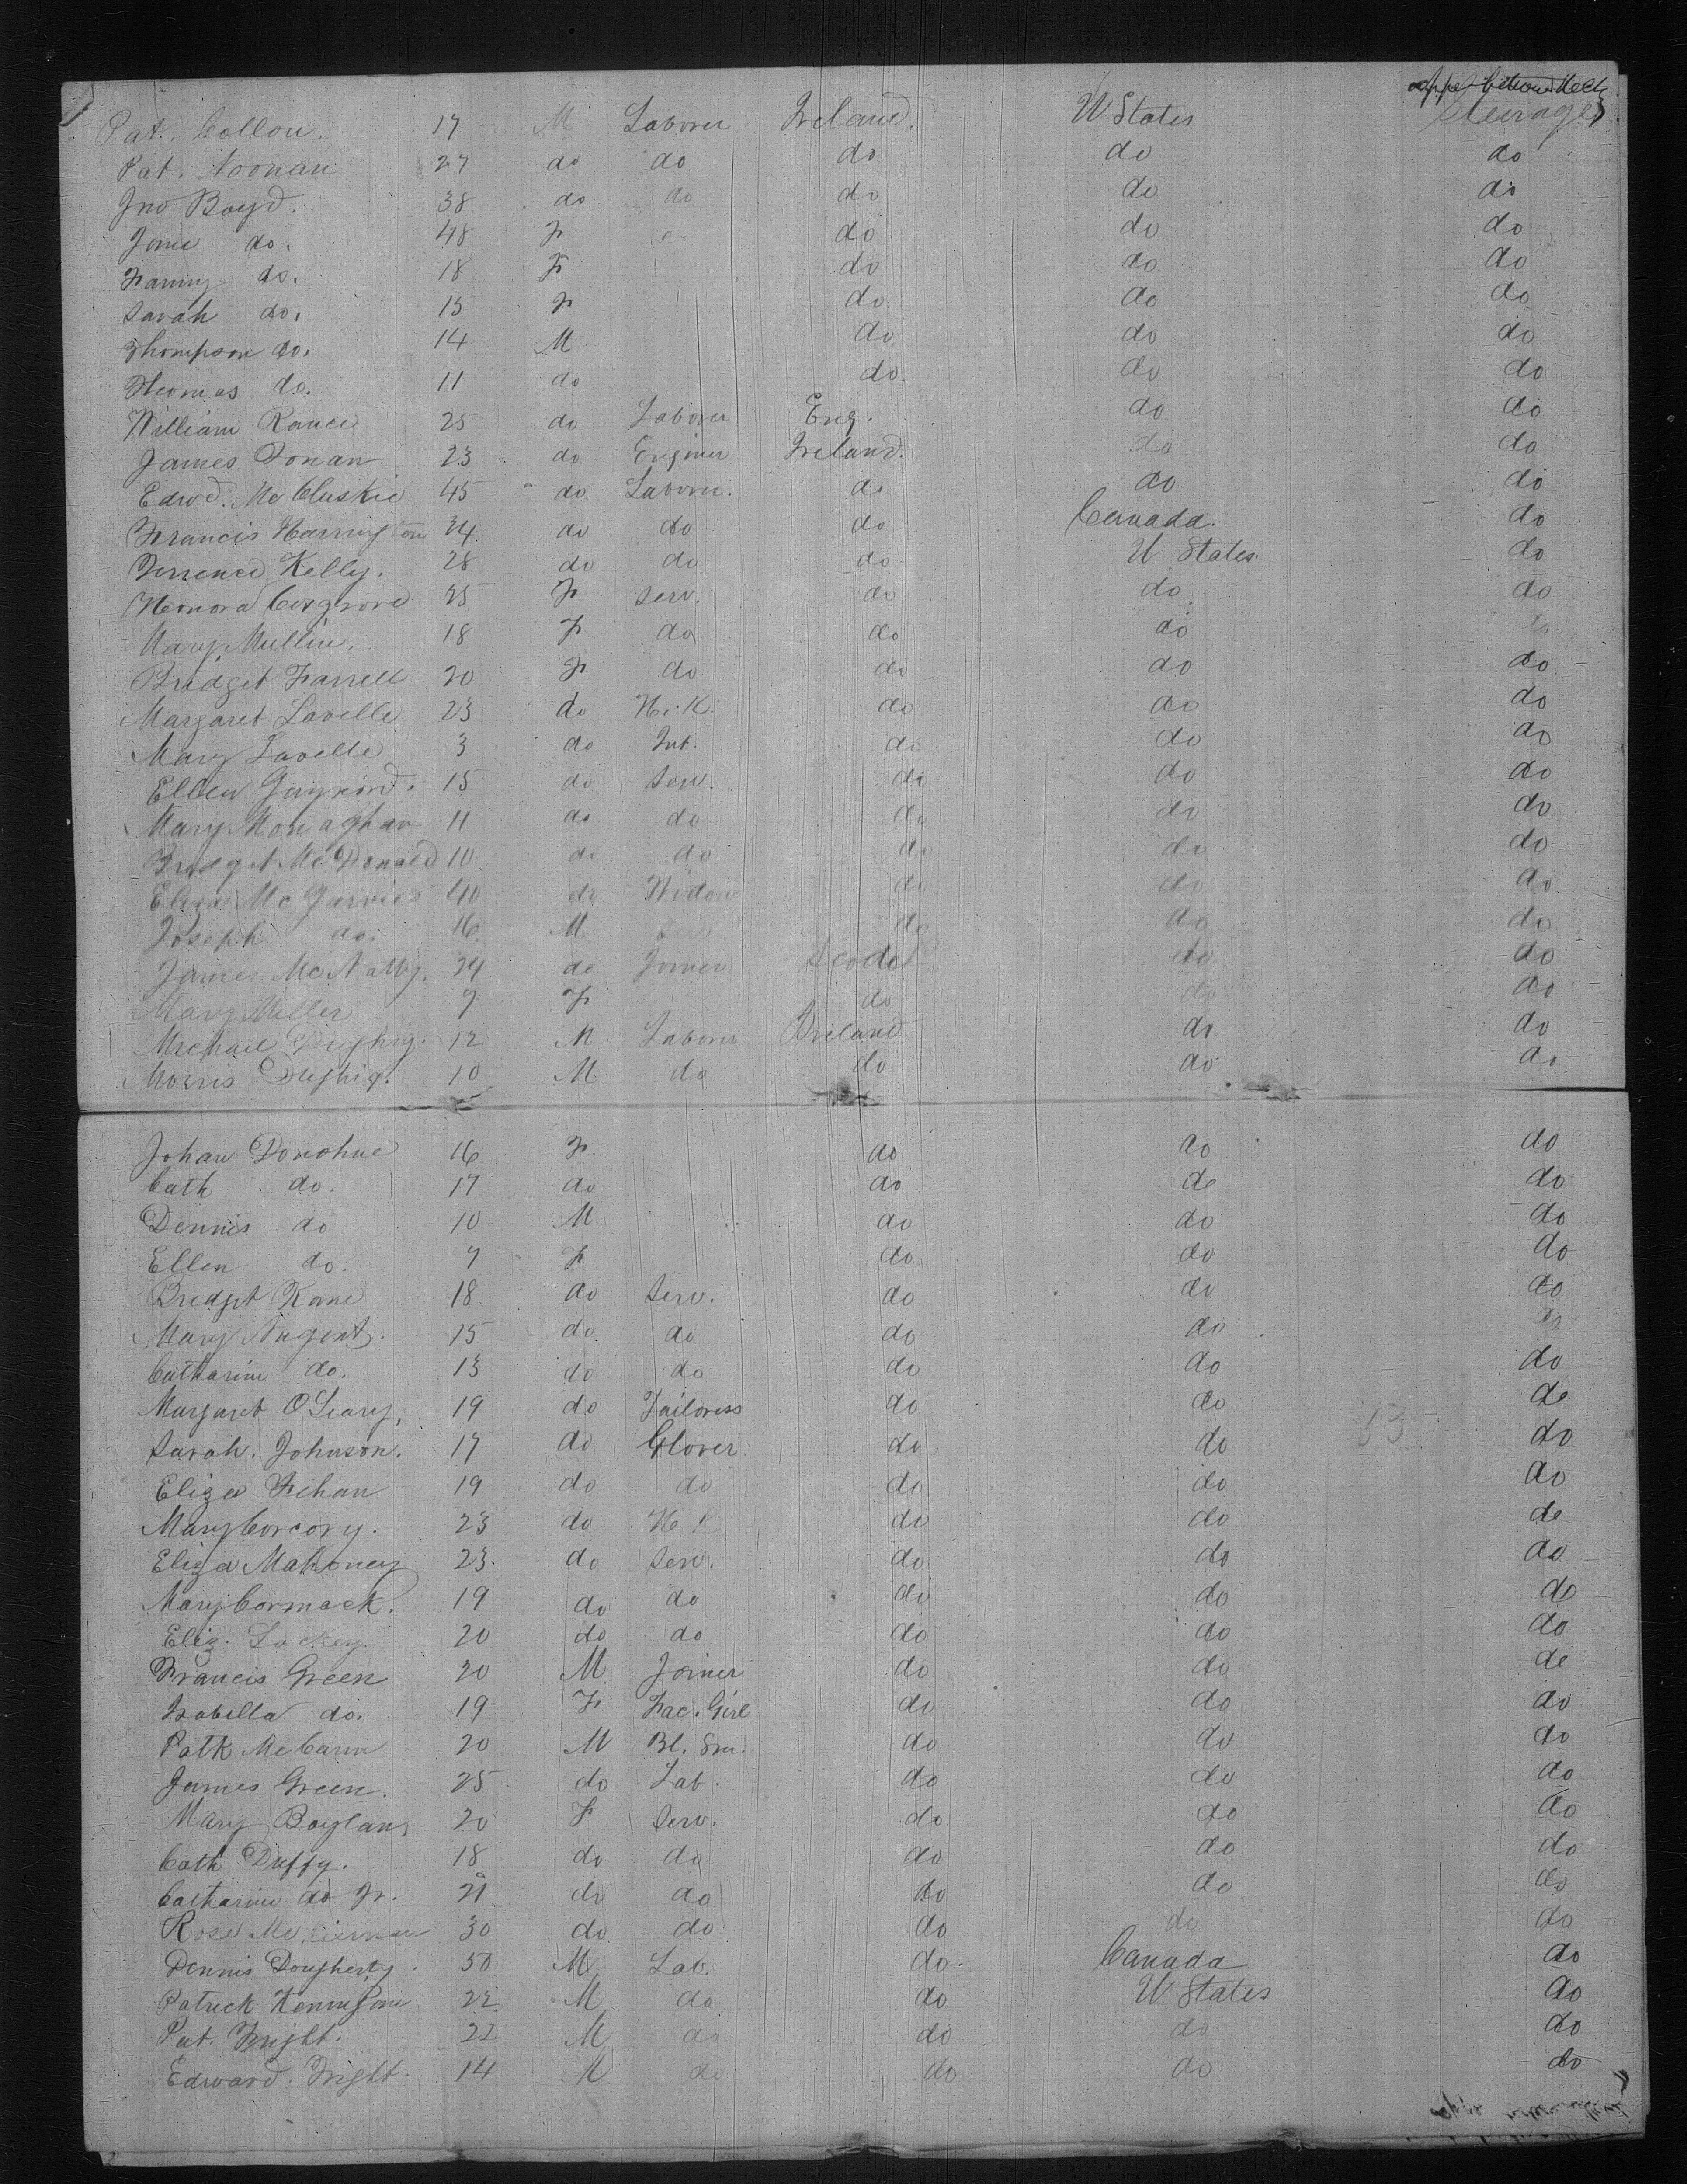 Steerage
Pat. Collon. 17 M Laborer Ireland. U States
Pat. Noonan 27 do do do do do
Jno Boyd. 38 do do do do do
Jane do. 48 F do do do
Fanny do. 18 F do do do
Sarah do. 15 F do do do
Thompson do. 14 M do do do
Thomas do. 11 do do. do do
William Rance 25 do Laborer Eng. do do
James Donan 23 do Enginer Ireland. do do
Edwd. McCluskie 45 do Laborer. do do do
Francis Harrington 34. do do do Canada. do
Terrence Kelly. 28 do do do U States. do
Honora Cosgrove 25 F Serv. do do do
Mary Mullin. 18 F do do do do
Bridget Farrell 20 F do do do do
Margaret Lavelle 23 do H.K. do do do
Mary Lavelle 3 do Inf. do do do
Ellen 15 do Serv. do do do
Mary Monaghan 11 do do do do do
Bridget McDonald 10 do do do do do
Eliza McGarvie 40 do Widow do do do
Joseph do. 16. M do do do
James McNally. 24 do Joiner Scotd do. do
Mary Miller 7 F do do do
Michael Duphig. 12 M Laborer Ireland do. do
Morris Duphig. 10 M do do do do
Johan Donohue 16 F. do do do
Cath do. 17 do do do do
Dennis do 10 M do do do
Ellen do. 7 F do do do
Bridget Kane 18 do Serv. do do do
Mary Nugent. 15 do. do do do do
Catharine do. 13 do do do do do
Margaret O'Leary, 19 do Tailoress do do do
Sarah. Johnson. 17 do Glover. do do do
Eliza Fehan 19 do do do do do
Mary Corcory. 23 do H do do do
Eliza Mahoney 23. do Serv. do do do
Mary Cormack. 19 do do do do do
Eliz. Lackey. 20 do do do do do
Francis Green 20 M Joiner do do do
Isabella do. 19 F Fac. Girl do do do
Patk McCann 20 M Bl. Sm. do do do
James Green. 25 do Lab. do do do
Mary Boylan, 20 F Serv. do do do
Cath Duffy. 18 do do do do do
Catharine do Jr. 21 do do do do do
Rose 30 do do do do do
Dennis Dougherty. 50 M Lab. do. Canada do
Patrick 22 M do do U States do
Pat. Fright. 22 M do do do do
Edward. Fright. 14 M do do do do